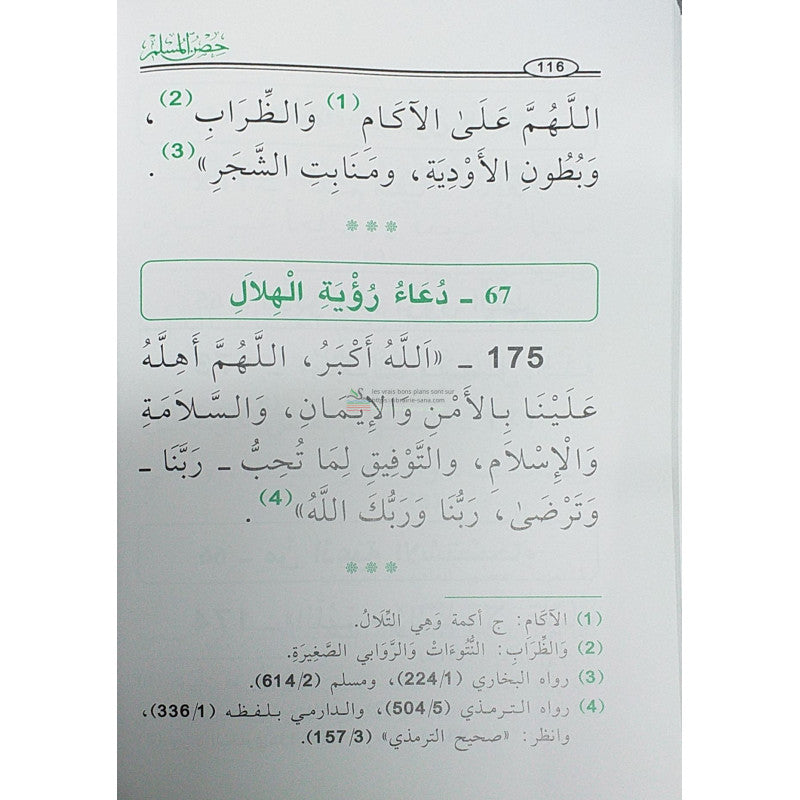 حصن المسلم
116
اللَّهُمَّ عَلَىٰ الآكَامِ (1) وَالظِّرَابِ (2)،
وَبُطُونِ الأَوْدِيَةِ، ومَنَابِتِ الشَّجَرِ» (3) .
67 ـ دُعَاءُ رُؤْيَةِ الْهِلالِ
175 ـ «اَللَّهُ أَكْبَرُ، اللَّهُمَّ أَهِلَّهُ
عَلَيْنَا بِالأَمْنِ وَالإِيمَانِ، وَالسَّلامَةِ
les vrais bons plans sont sur
https://librairie-sana.com
وَالْإِسْلامِ، والتَّوْفِيقِ لِمَا تُحِبُّ ـ رَبَّنَا ـ
وَتَرْضَىٰ، رَبُّنَا وَرَبُّكَ اللَّهُ» (4) .
(1) الآكَامِ: ج أكمة وَهِي التِّلَالُ.
(2) وَالظِّرَابِ: النُّتُوءَاتُ وَالرَّوَابي الصَّغِيرَةِ.
(3) رواه البخاري (224/1)، ومسلم (614/2).
(4) رواه الترمذي (504/5)، والدارمي بلفظه (336/1)،
وانظر: «صحيح الترمذي» (157/3).